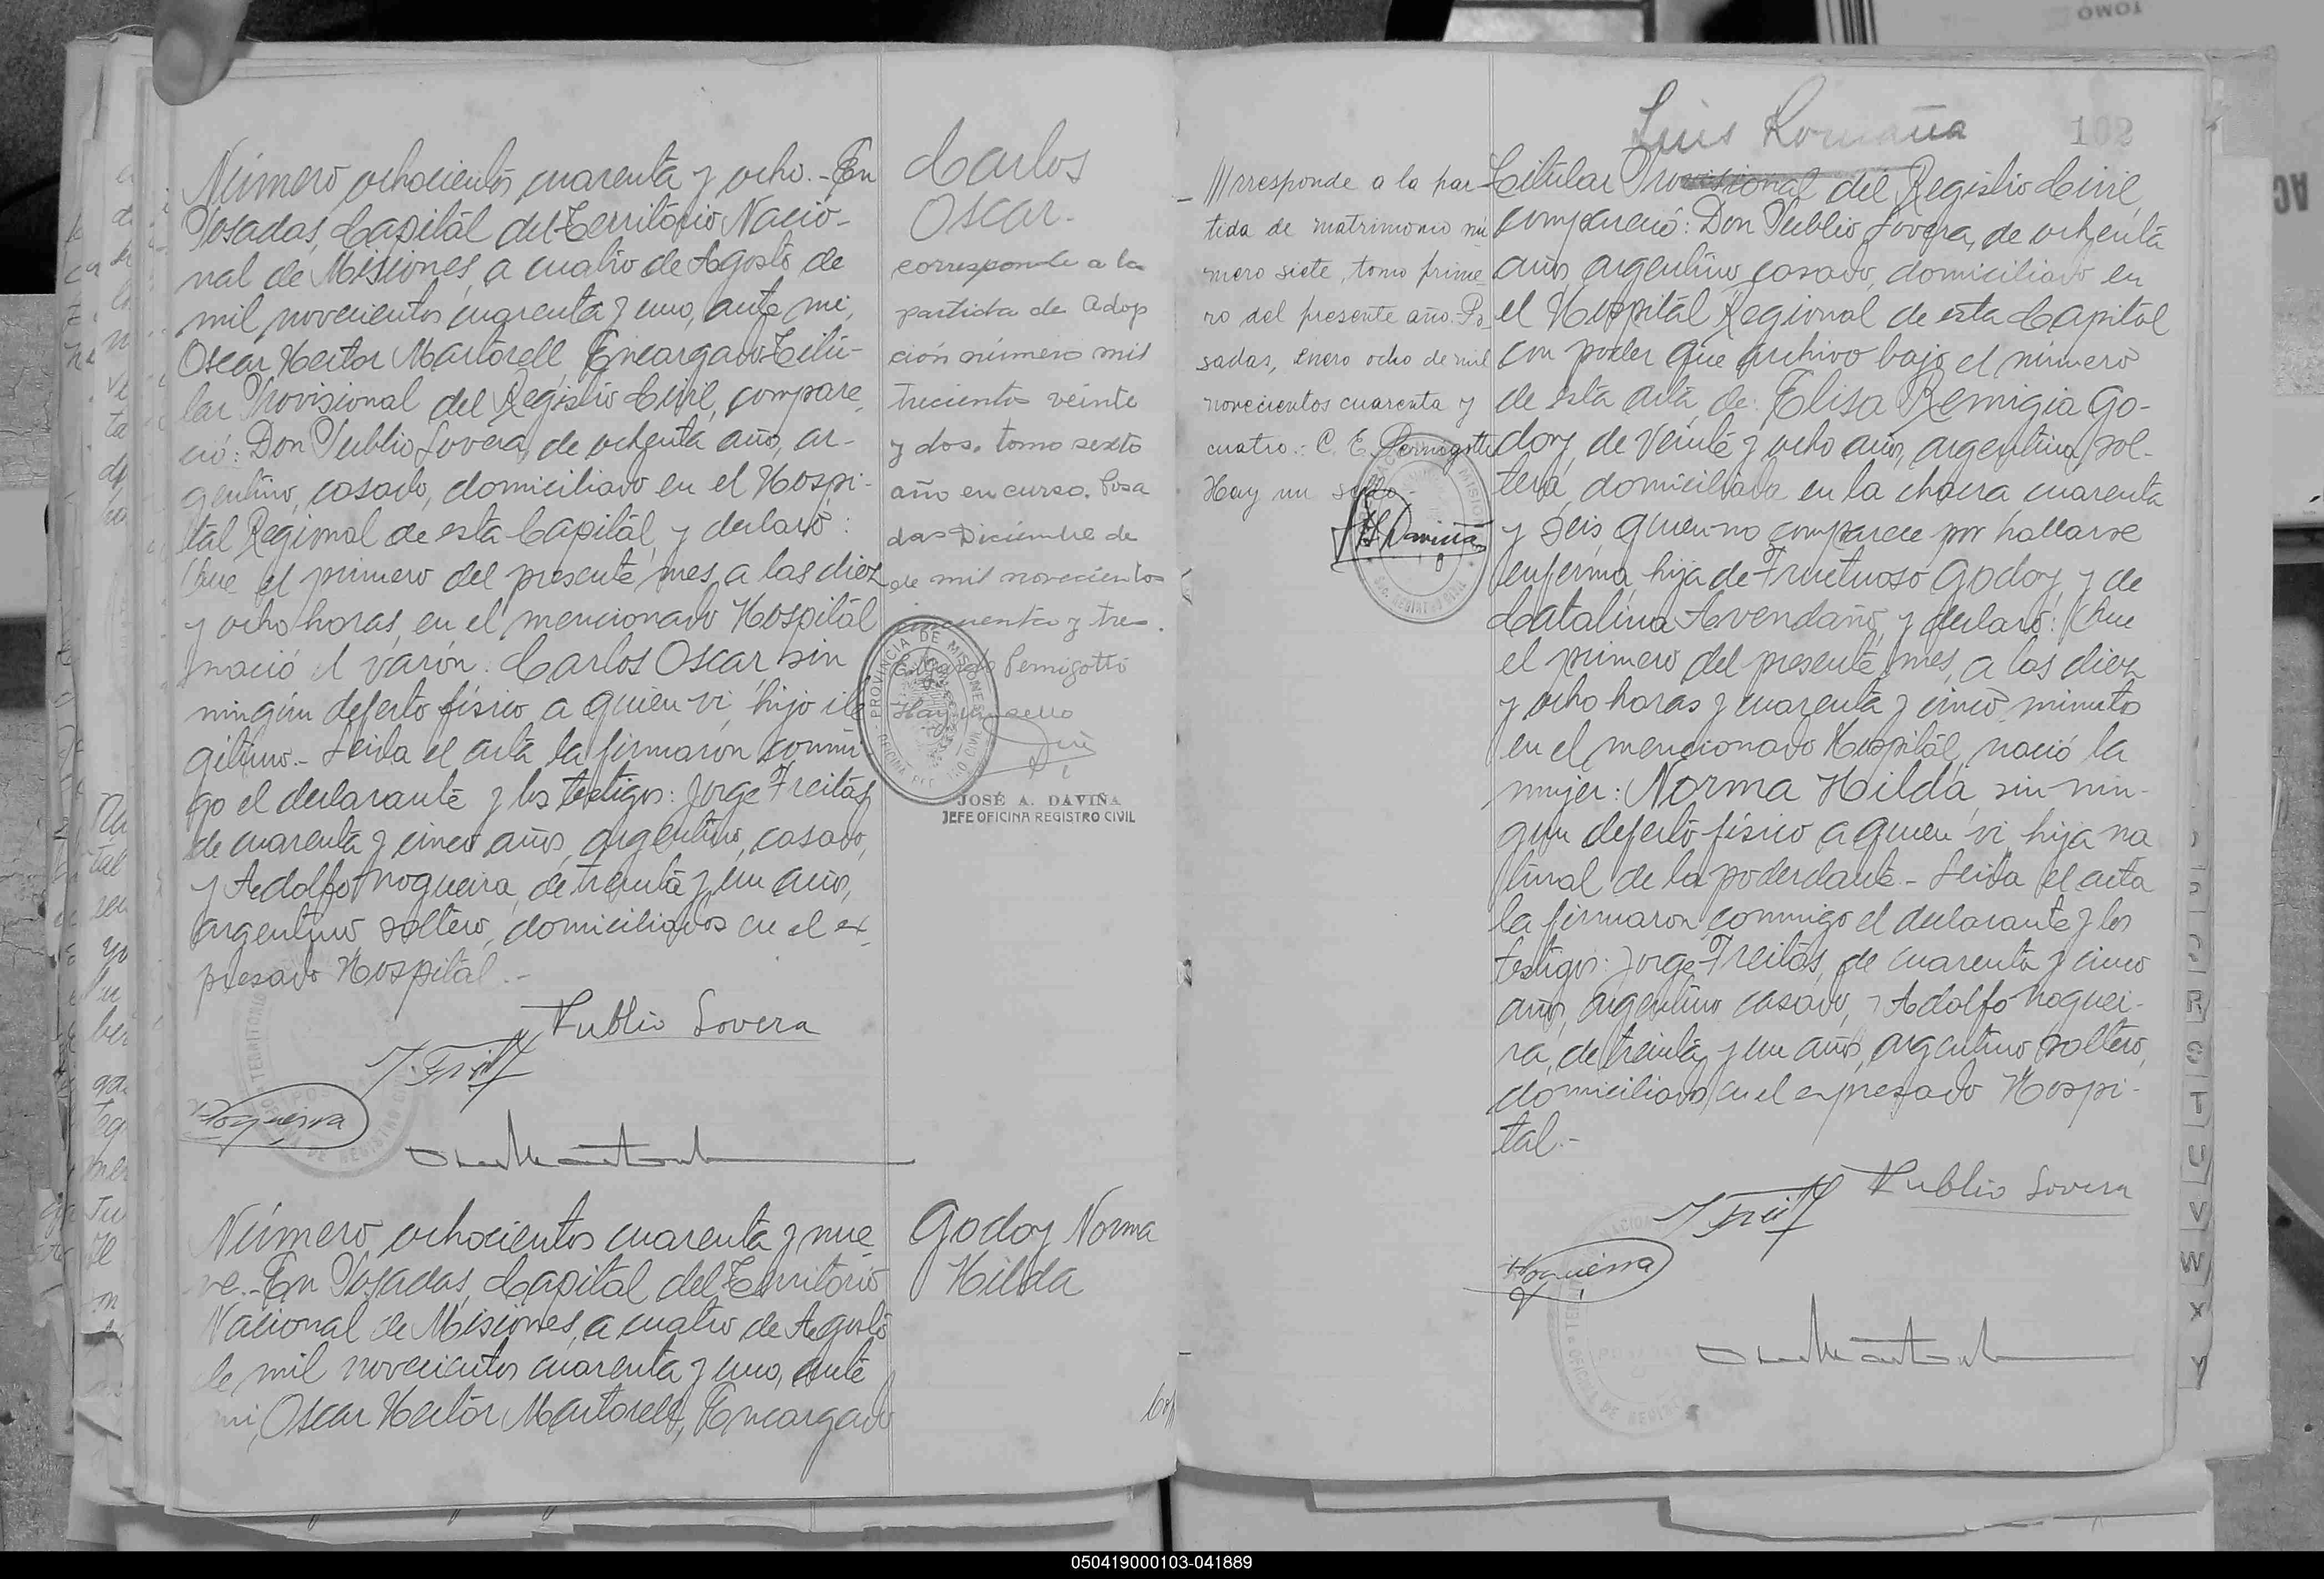 Número ochocientos cuarenta y ocho.- En
Posadas, Capital del Territorio Nacio-
nal de Misiones, a cuatro de Agosto de
mil novecientos cuarenta y uno, ante mi,
Oscar Hector Martorell, Encargado Titu-
lar Provisional del Registro Civil, compare
ció: Don Publio Lovera, de ochenta años, ar-
gentino, casado, domiciliado en el Hospi-
tal Regional de esta Capital, y declaró:
Que el primero del presente mes, a las diez
y ocho horas, en el mencionado Hospital
nació el varón: Carlos Oscar, sin
ningún defecto físico a quien vi, hijo ile
gitimo.- Leida el acta la firmaron conmi
go el declarante y los testigos: Jorge Freitas,
de cuarenta y cinco años, argentino, casado,
y Adolfo Nogueira, de treinta y un años,
argentino, soltero, domiciliados en el ex
presado Hospital.-
Publio Lovera
J. Freit
Nogueira
Número ochocientos cuarenta y nue
ve.- En Posadas, Capital del Territorio
Nacional de Misiones, a cuatro de Agosto
de mil novecientos cuarenta y uno, ante
mi, Oscar Hector Martorell, Encargado
Carlos
Oscar-
corresponde a la
partida de adop
ción número mil
trecientos veinte
y dos. tomo sexto
año en curso. Posa
das Diciembre de
de mil novecientos
cincuenta y tres.
Pernigotti
Hay un sello
PROVINCIA DE MISIONES
JOSÉ A. DAVIÑA
JEFE OFICINA REGISTRO CIVIL
Godoy Norma
Hilda
Luis Romaña
102
///rresponde a la par-
tida de matrimonio nú
mero siete, tomo prime
ro del presente año. Po-
sadas, enero ocho de mil
novecientos cuarenta y
cuatro.- C. E. Pernigotti
Hay un sello-
Daviña
Titular Provisional del Registro Civil,
compareció: Don Publio Lovera, de ochenta
años, argentino, casado, domiciliado en
el Hospital Regional de esta Capital
con poder que archivo bajo el número
de esta acta, de: Elisa Remigia Go-
doy, de veinte y ocho años, argentina, sol-
tera, domiciliada en la chacra cuarenta
y seis, quien no comparece por hallarse
enferma, hija de Fructuoso Godoy, y de
Catalina Avendaño, y declaró: Que
el primero del presente mes, a las diez
y ocho horas y cuarenta y cinco minutos
en el mencionado Hospital, nació la
mujer: Norma Hilda, sin nin-
gun defecto físico a quien vi, hija na
tural de la poderdante.- Leida el acta
la firmaron conmigo el declarante y los
testigos: Jorge Freitas, de cuarenta y cinco
años, argentino casado, y Adolfo Noguei-
ra, de treinta y un años, argentino, soltero,
domiciliados en el expresado Hospi-
tal.-
Publio Lovera
J Freit
Nogueira
R
S
T
U
V
W
X
Y
TOMO
050419000103-041889